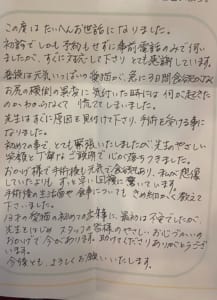 この度は たいへんお世話になりました。
初診で しかも 予約もせずに 事前電話のみで 伺い
ましたが、すぐに対応して下さり とても感謝しています。
普段は元気いっぱいの愛猫が、急に3日間食欲もなく
お尻の横側の異変に気付いた時には 何が起きた
のかわからなくて 慌ててしまいました。
先生はすぐに原因を見付けて下さり、手術を受ける事に
なりました。
初めての事で とても緊張いたしましたが 先生のやさしい
笑顔と丁寧なご説明で 心が落ちつきました。
おかげ様で手術後も元気で食欲もあり、私が想像
していたよりも ずっと早い回復に驚いています。
手術後の生活面や食事についても きめ細かく教えて
下さいました。
13才の愛猫の初めての 最初は不安でしたが、
先生をはじめ スタッフの皆様のやさしい お心づかいの
おかげで今があります。助けてくださり ありがとうござい
ます。
今後とも、よろしくお願いいたします。